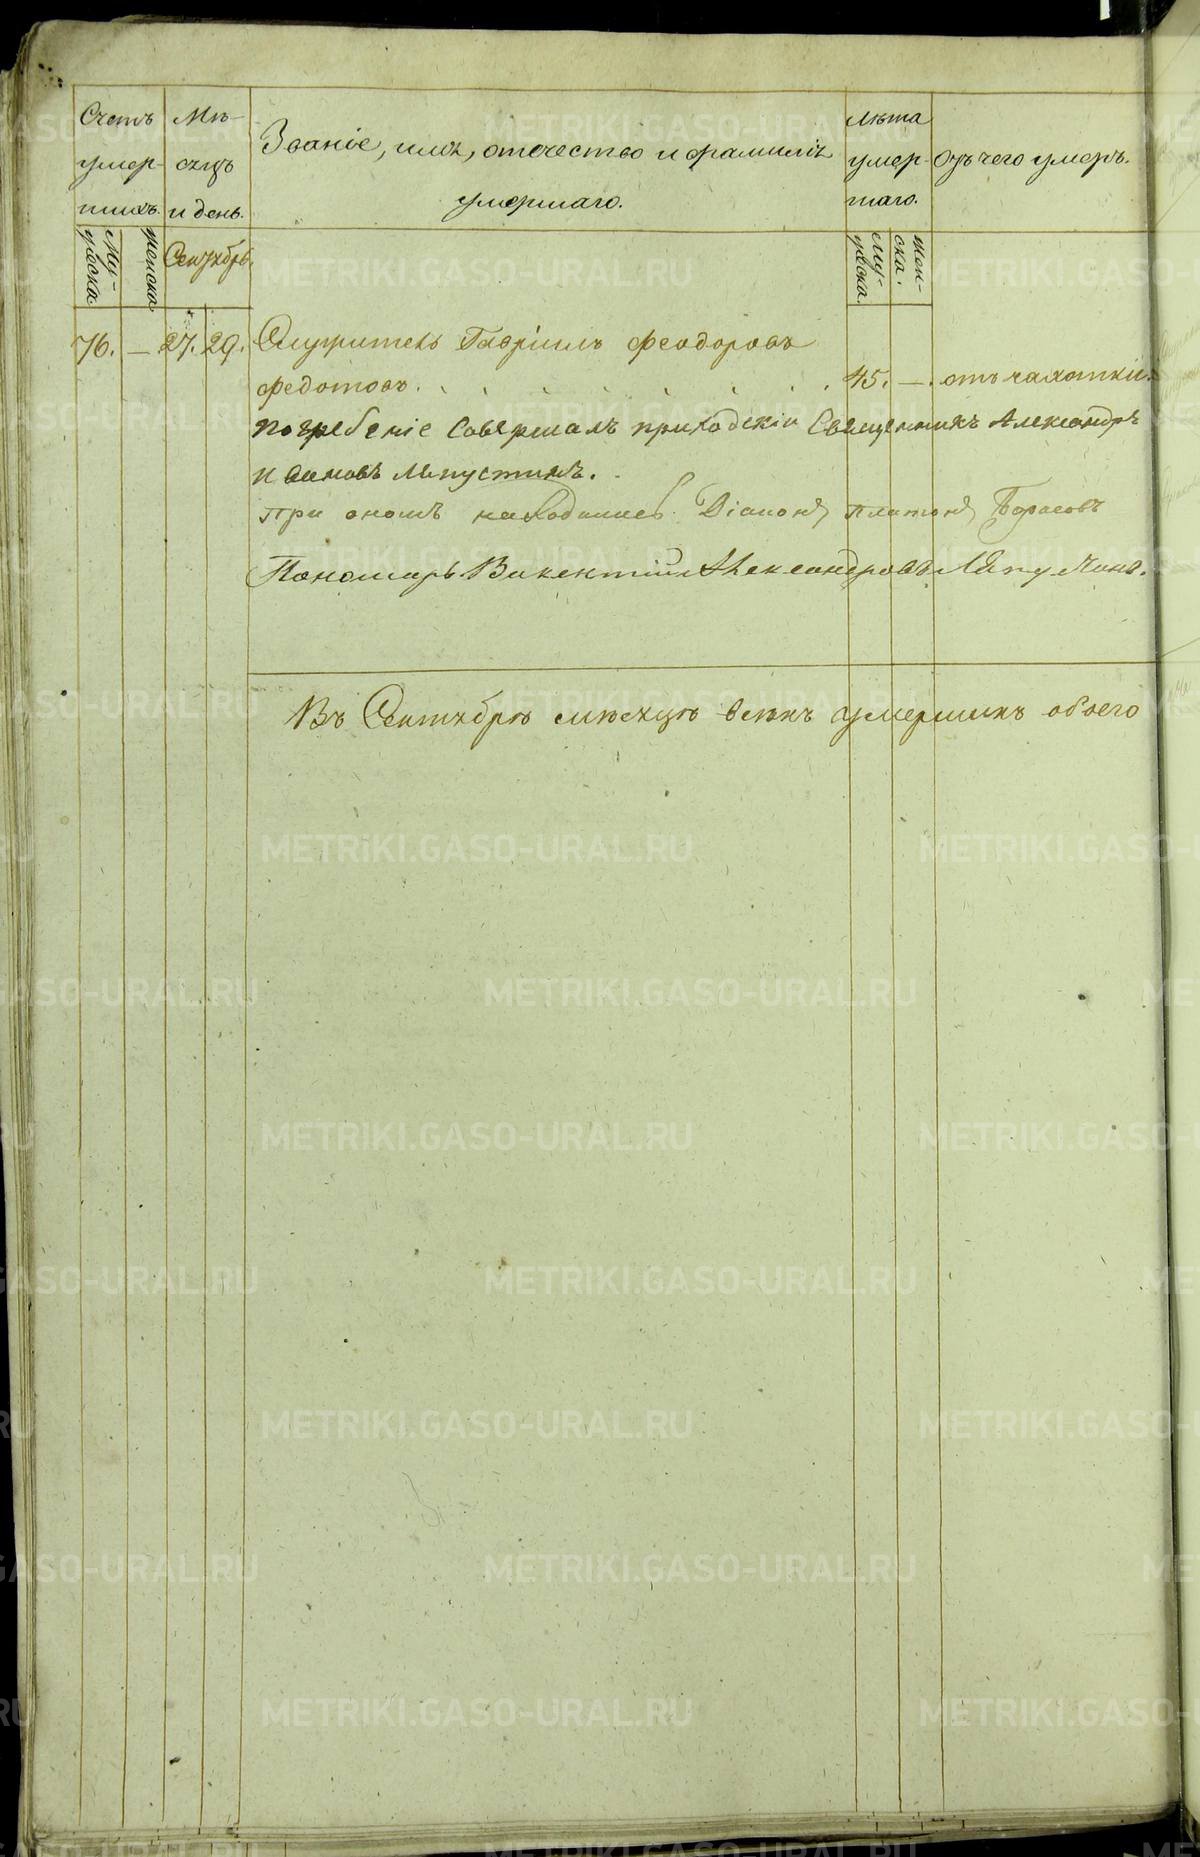 Счетъ умер- шихъ.
Мѣ- сяцъ и день.
Званіе, имя, отечество и фамилія умершаго.
Лѣта умер- шаго.
Отъ чего умеръ.
Му- жеска. женска
Сентябрь.
Му- жеска. Жен- ска.
76. — 27. 29. Служитель Гавріилъ Феодоровъ
Федотовъ. 45. — отъ чахотки.
Погребеніе Совершалъ приходскій Священникъ Александръ
Ивановъ Ляпустинъ.
При ономъ находились Діаконъ Платонъ
Пономарь Викентій Александровъ
Въ Сентябрѣ мѣсяцѣ всѣхъ умершихъ обоего
METRIKI.GASO-URAL.RU